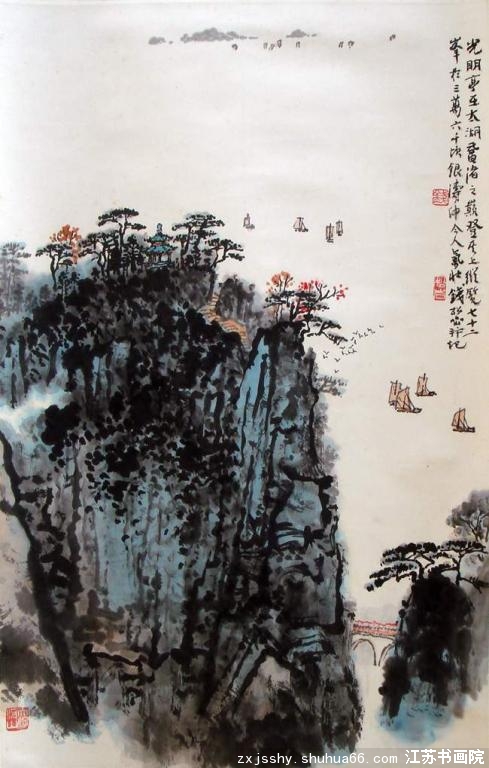 光明亭在太湖黿渚之巔登其上縱覽七十二
峯於三萬六千頃銀濤中令人氣壯錢松喦并記
zxjsshy.shuhua66.com 江苏书画院